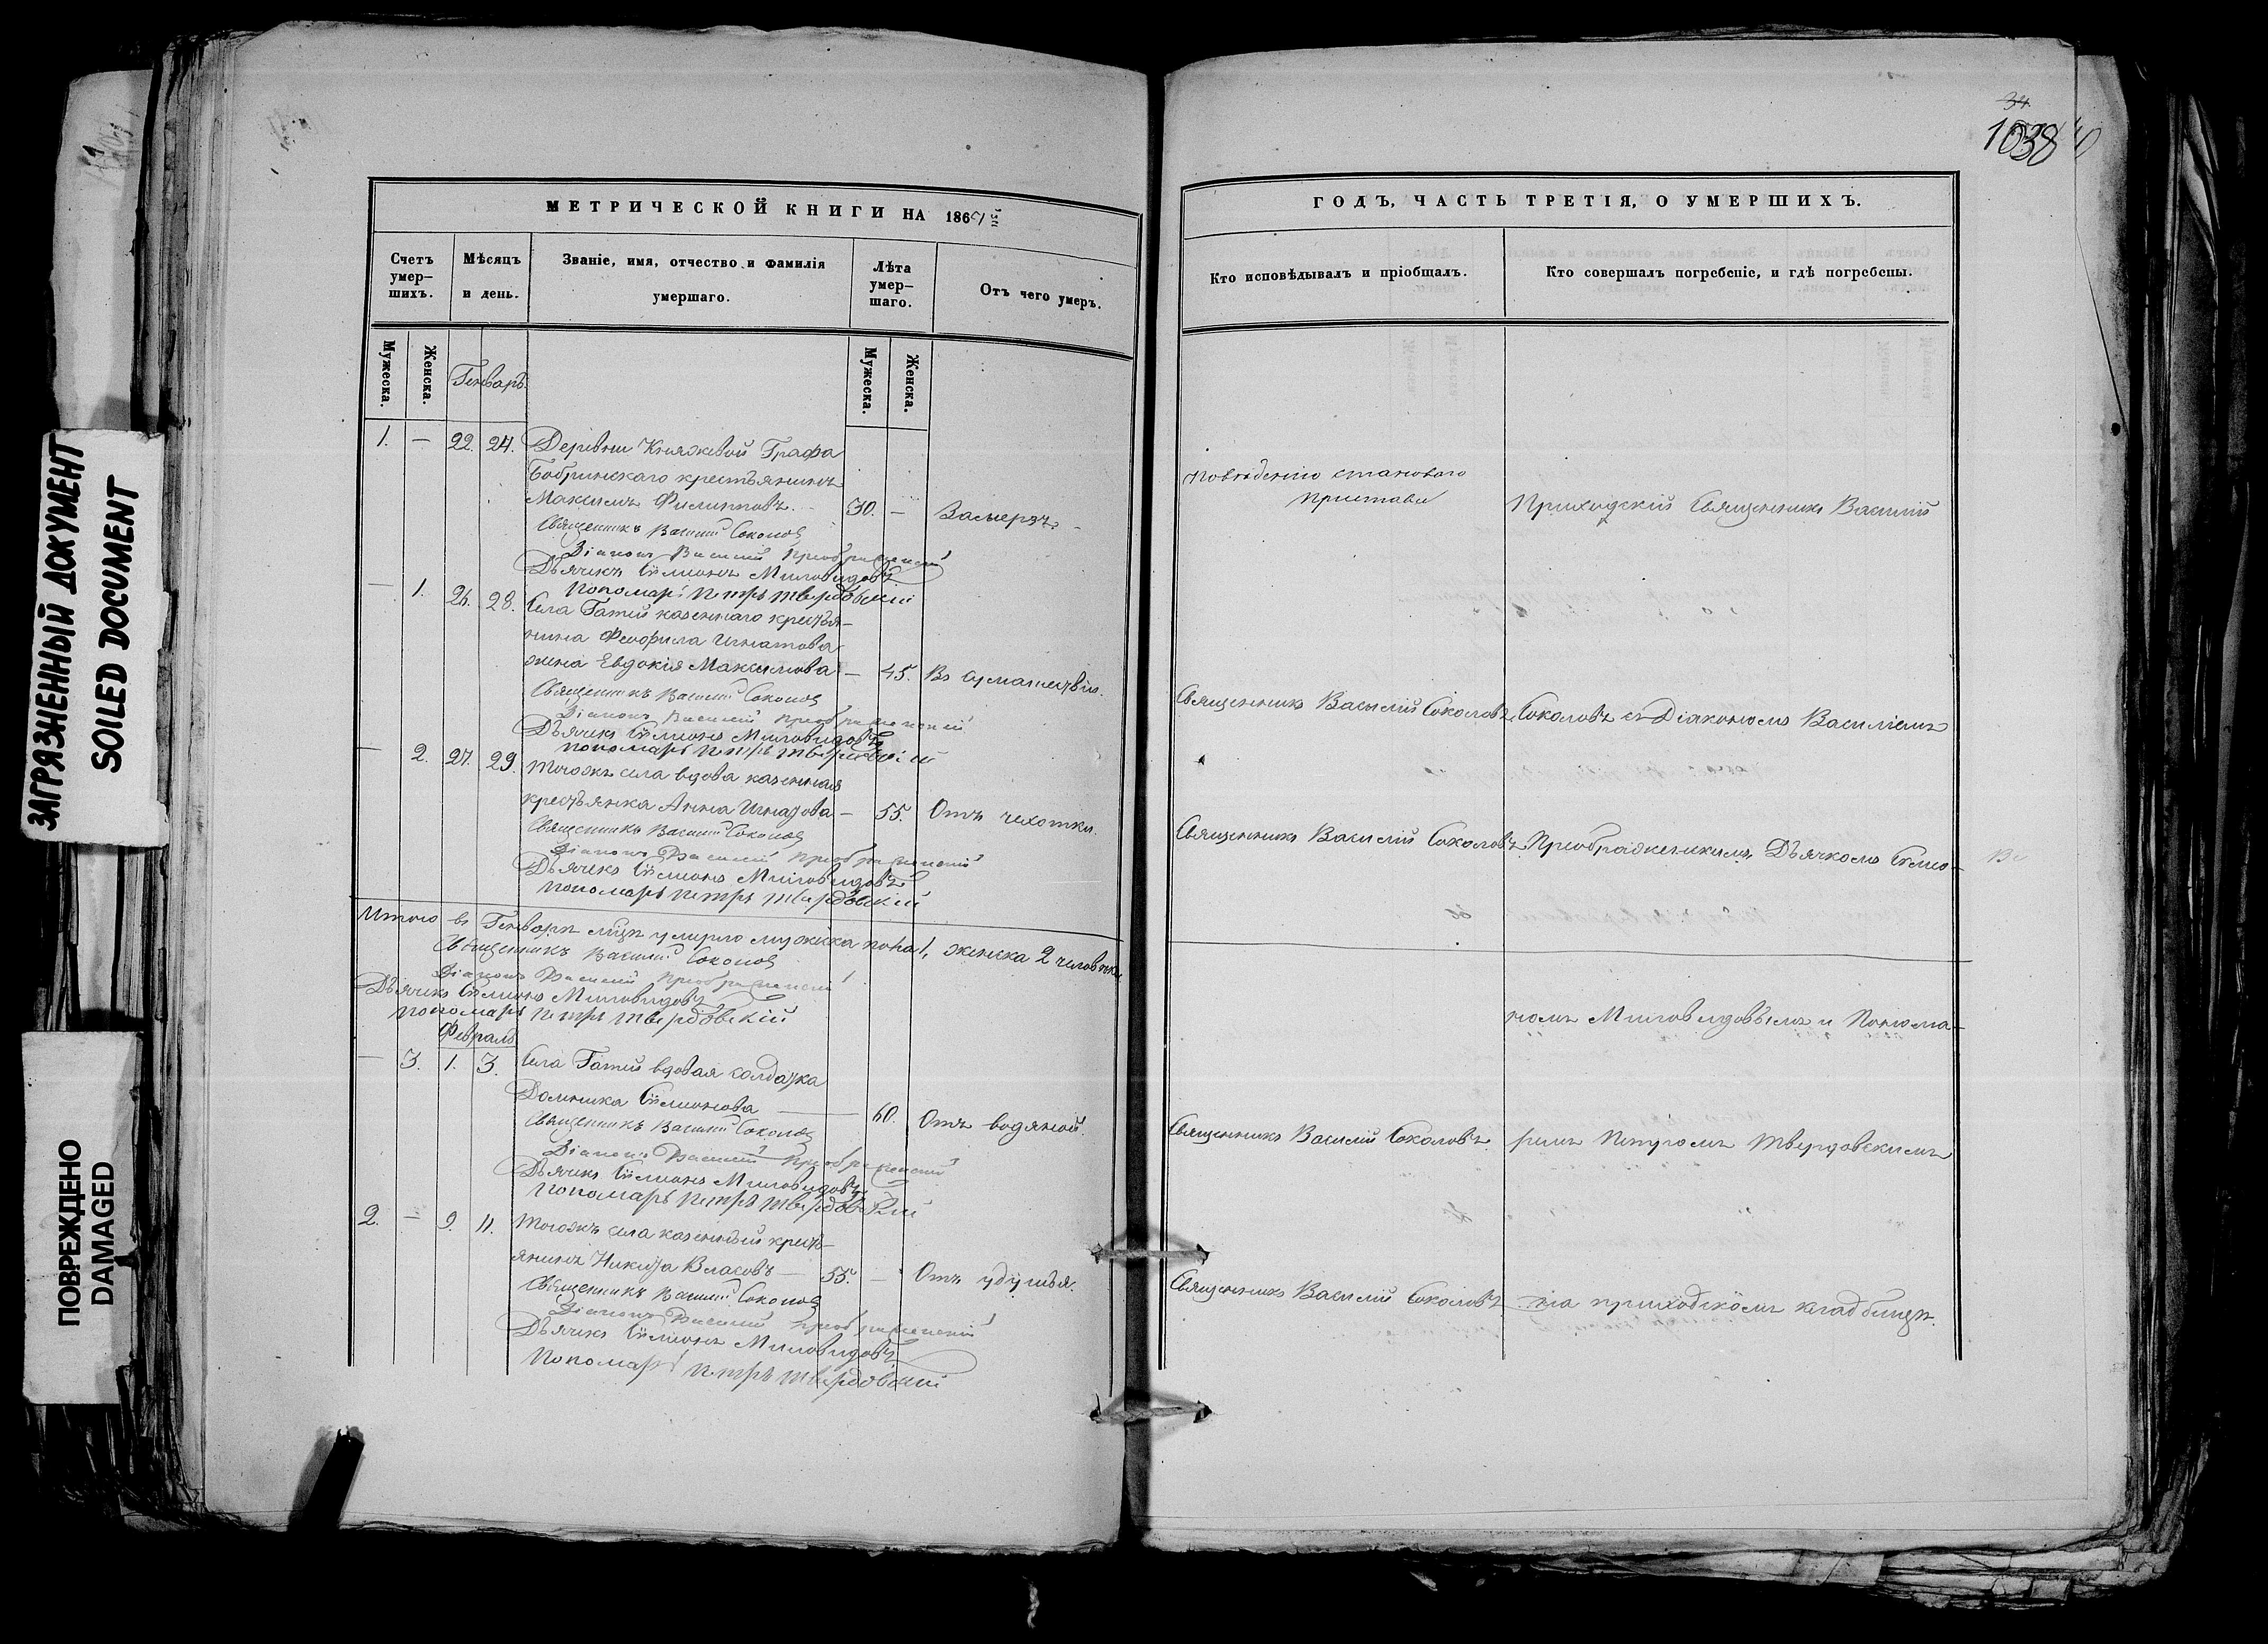 ЗАГРЯЗНЕННЫЙ ДОКУМЕНТ
SOILED DOCUMENT
ПОВРЕЖДЕНО
DAMAGED
МЕТРИЧЕСКОЙ КНИГИ НА 186
Счетъ умер-шихъ.
Мѣсяцъ и день.
Званіе, имя, отчество и фамилія умершаго.
Лѣта умер-шаго.
Отъ чего умеръ.
Мужеска.
Женска.
Мужеска.
Женска.
Генварь
1. — 22. 24. Деревни Княжевой Графа
Бобринскаго крестьянинъ
Максимъ Филипповъ. 30. — Замерзъ
Священникъ Василій Соколовъ
Діаконъ Василій Преображенскій
Дьячекъ Симіонъ Миловидовъ
Пономарь Петръ Твердовскій
— 1. 26. 28. Села Гатей казеннаго крестья-
нина Феофила Игнатова
жена Евдокія Максимова — 45. Въ сумашествіи.
Священникъ Василій Соколовъ
Діаконъ Василій Преображенскій
Дьячекъ Симіонъ Миловидовъ
Пономарь Петръ Твердовскій
— 2. 27. 29. Тогожъ села вдова казенная
крестьянка Анна Игнатова — 55. Отъ чехотки.
Священникъ Василій Соколовъ
Діаконъ Василій Преображенскій
Дьячекъ Симіонъ Миловидовъ
Пономарь Петръ Твердовскій
Итого въ Генварѣ мцѣ умерло мужеска пола 1, женска 2 человѣка
Священникъ Василій Соколовъ
Діаконъ Василій Преображенскій
Дьячекъ Симіонъ Миловидовъ
Пономарь Петръ Твердовскій
Февраль
— 3. 1. 3. Села Гатей вдовая солдатка
Домника Симионова — 60. Отъ водяной.
Священникъ Василій Соколовъ
Діаконъ Василій Преображенскій
Дьячекъ Симіонъ Миловидовъ
Пономарь Петръ Твердовскій
2. — 9. 11. Тогожъ села казенный кресть-
янинъ Никита Власовъ — 55. — Отъ удушья.
Священникъ Василій Соколовъ
Діаконъ Василій Преображенскій
Дьячекъ Симіонъ Миловидовъ
Пономарь Петръ Твердовскій
34
1038
ГОДЪ, ЧАСТЬ ТРЕТІЯ, О УМЕРШИХЪ.
Кто исповѣдывалъ и пріобщалъ.
Кто совершалъ погребеніе, и гдѣ погребены.
становаго
Пристава
Приходскій Священникъ Василій
Священникъ Василій Соколовъ. Соколовъ съ Діакономъ Василіемъ
Священникъ Василій Соколовъ. Преображенскимъ, Дьячкомъ Симіо-
номъ Миловидовымъ и Понома-
Священникъ Василій Соколовъ. ремъ Петромъ Твердовскимъ
Священникъ Василій Соколовъ. на приходскомъ кладбищѣ.